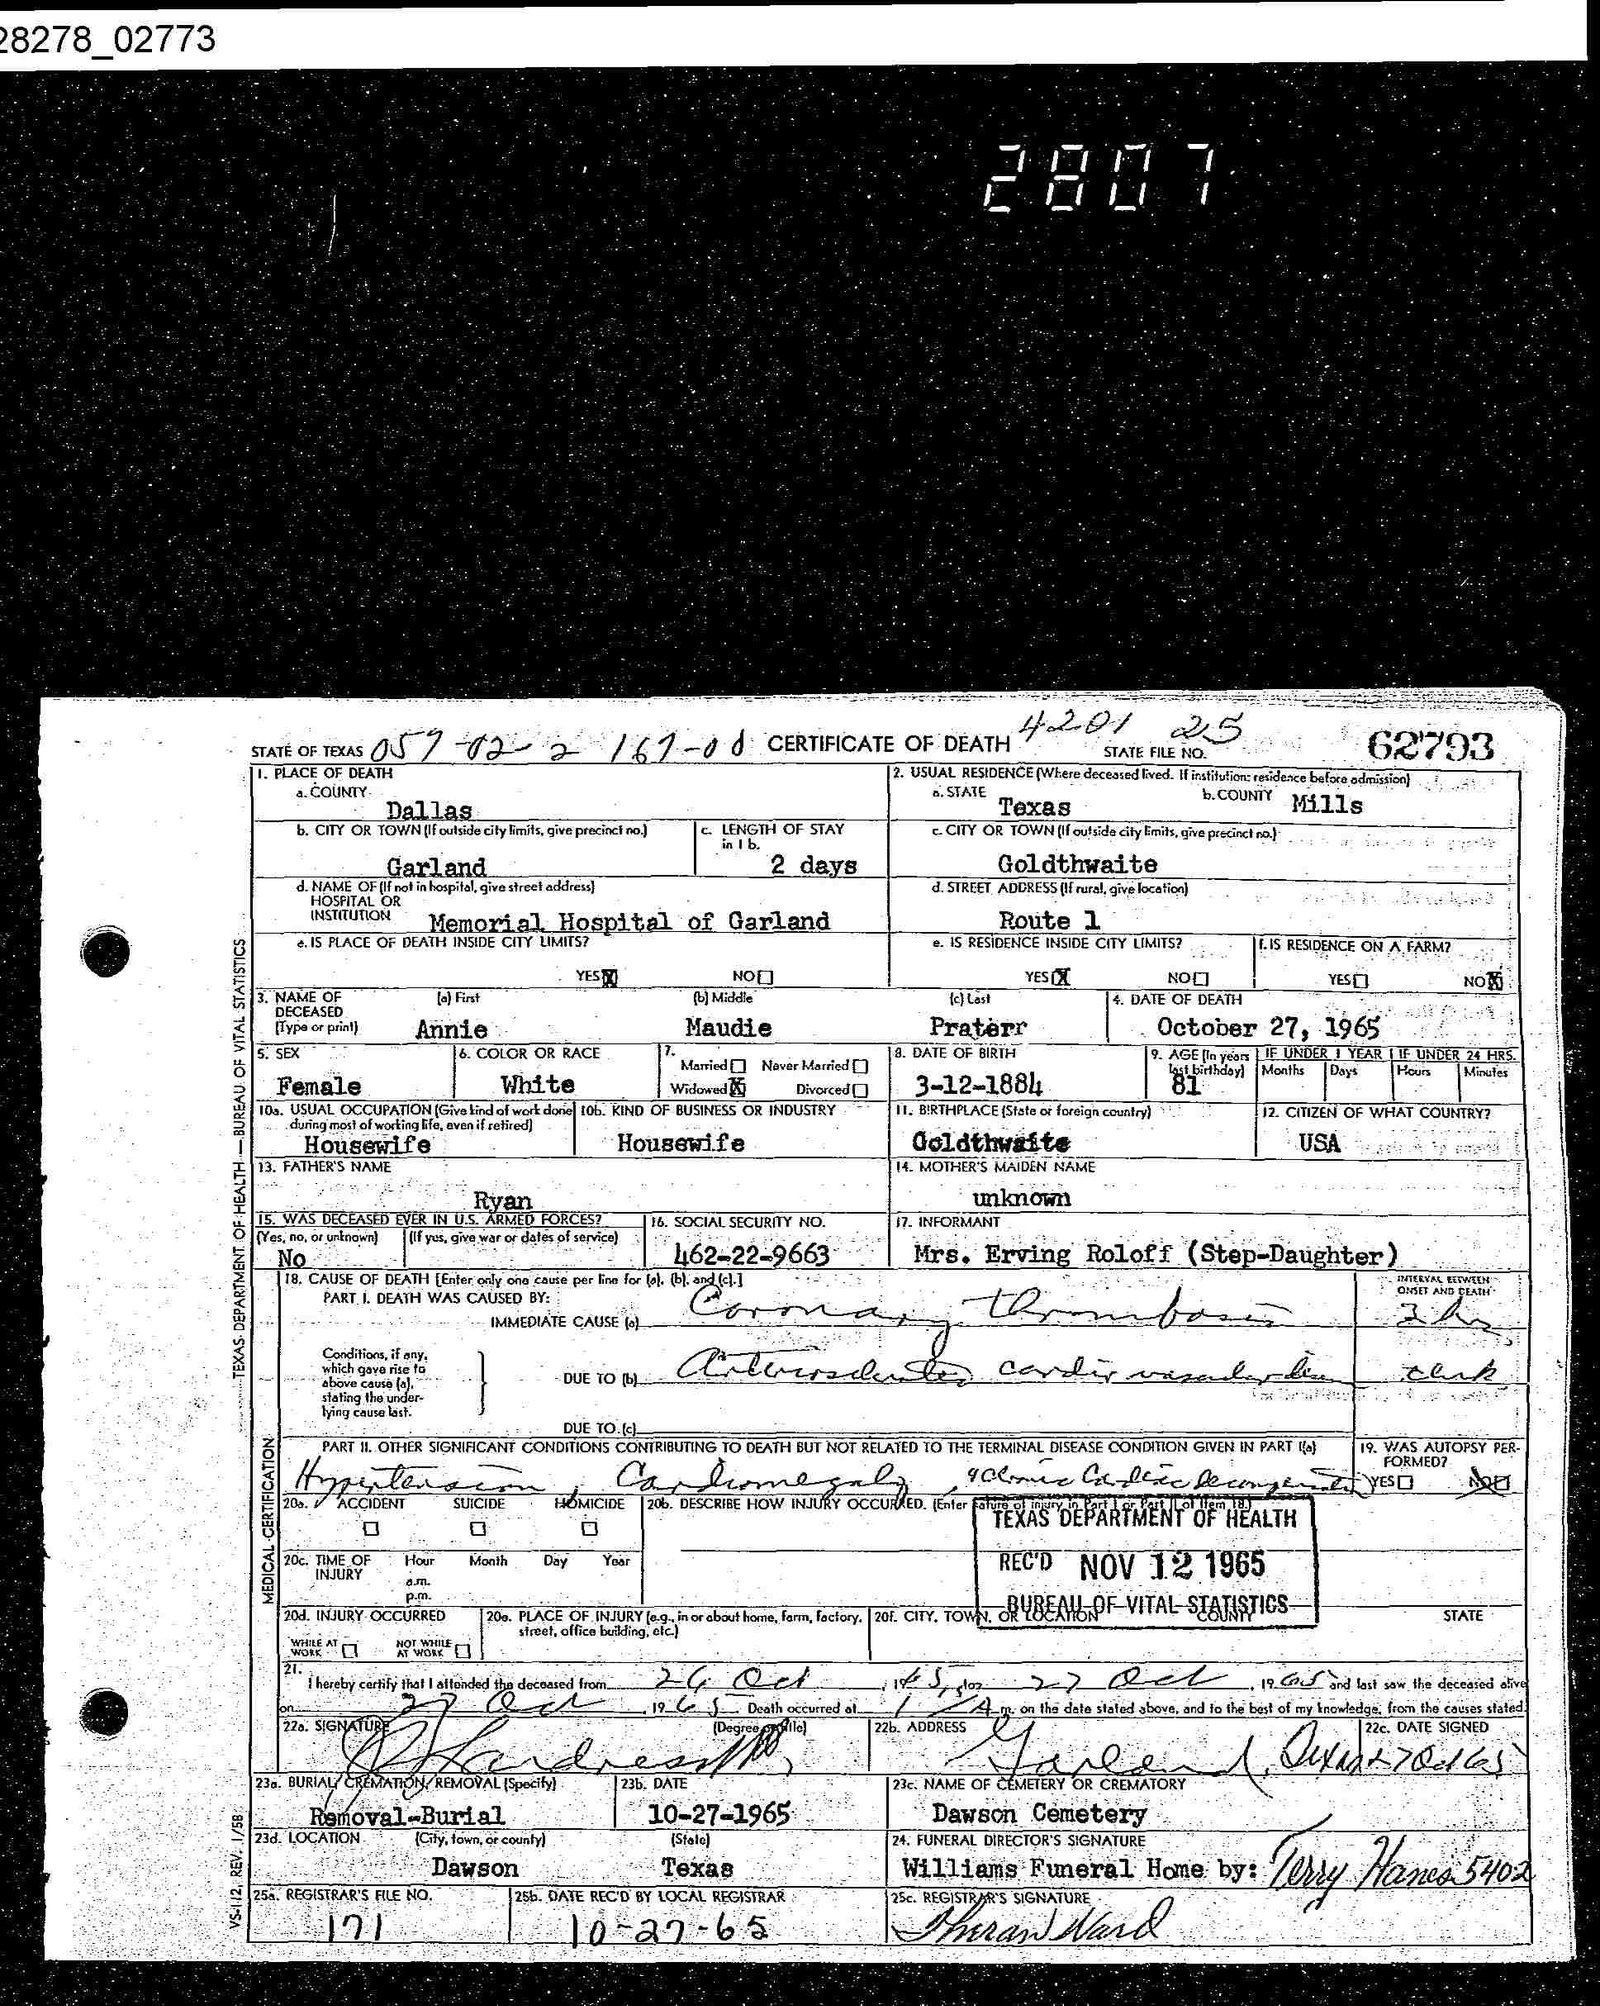 28278_02773
2807
STATE OF TEXAS 059-02-2 167-00 CERTIFICATE OF DEATH 4201 25 STATE FILE NO. 62793
1. PLACE OF DEATH
a. COUNTY
Dallas
2. USUAL RESIDENCE (Where deceased lived. If institution: residence before admission)
a. STATE Texas b. COUNTY Mills
b. CITY OR TOWN (If outside city limits, give precinct no.)
Garland
c. LENGTH OF STAY in 1 b.
2 days
c. CITY OR TOWN (If outside city limits, give precinct no.)
Goldthwaite
d. NAME OF (If not in hospital, give street address)
HOSPITAL OR
INSTITUTION Memorial Hospital of Garland
d. STREET ADDRESS (If rural, give location)
Route 1
e. IS PLACE OF DEATH INSIDE CITY LIMITS?
YES X NO
e. IS RESIDENCE INSIDE CITY LIMITS?
YES X NO
f. IS RESIDENCE ON A FARM?
YES NO X
3. NAME OF DECEASED (Type or print)
(a) First (b) Middle (c) Last
Annie Maudie Praterr
4. DATE OF DEATH
October 27, 1965
5. SEX
Female
6. COLOR OR RACE
White
7.
Married Never Married
Widowed X Divorced
8. DATE OF BIRTH
3-12-1884
9. AGE (In years last birthday)
81
IF UNDER 1 YEAR IF UNDER 24 HRS.
Months Days Hours Minutes
10a. USUAL OCCUPATION (Give kind of work done during most of working life, even if retired)
Housewife
10b. KIND OF BUSINESS OR INDUSTRY
Housewife
11. BIRTHPLACE (State or foreign country)
Goldthwaite
12. CITIZEN OF WHAT COUNTRY?
USA
13. FATHER'S NAME
Ryan
14. MOTHER'S MAIDEN NAME
unknown
15. WAS DECEASED EVER IN U.S. ARMED FORCES?
(Yes, no, or unknown) (If yes, give war or dates of service)
No
16. SOCIAL SECURITY NO.
462-22-9663
17. INFORMANT
Mrs. Erving Roloff (Step-Daughter)
18. CAUSE OF DEATH [Enter only one cause per line for (a), (b), and (c).]
PART I. DEATH WAS CAUSED BY:
IMMEDIATE CAUSE (a) Coronary thrombosis
INTERVAL BETWEEN ONSET AND DEATH
Conditions, if any,
which gave rise to
above cause (a),
stating the under-
lying cause last.
DUE TO (b) Arteriosclerotic cardiovascular
DUE TO (c)
PART II. OTHER SIGNIFICANT CONDITIONS CONTRIBUTING TO DEATH BUT NOT RELATED TO THE TERMINAL DISEASE CONDITION GIVEN IN PART I(a)
Hypertension, Cardiomegaly, Chronic Cardiac
19. WAS AUTOPSY PERFORMED?
YES NO
20a. ACCIDENT SUICIDE HOMICIDE
20b. DESCRIBE HOW INJURY OCCURRED. (Enter nature of injury in Part I or Part II of Item 18)
TEXAS DEPARTMENT OF HEALTH
REC'D NOV 12 1965
BUREAU OF VITAL STATISTICS
20c. TIME OF INJURY
Hour Month Day Year
a.m.
p.m.
20d. INJURY OCCURRED
WHILE AT WORK NOT WHILE AT WORK
20e. PLACE OF INJURY (e.g., in or about home, farm, factory, street, office building, etc.)
20f. CITY, TOWN, OR LOCATION COUNTY STATE
21.
I hereby certify that I attended the deceased from 26 Oct, 1965, to 27 Oct, 1965 and last saw the deceased alive
on 27 Oct 1965 Death occurred at 1 A m. on the date stated above, and to the best of my knowledge, from the causes stated.
22a. SIGNATURE (Degree or title)
22b. ADDRESS
Garland, Texas
22c. DATE SIGNED
27 Oct 65
23a. BURIAL, CREMATION, REMOVAL (Specify)
Removal-Burial
23b. DATE
10-27-1965
23c. NAME OF CEMETERY OR CREMATORY
Dawson Cemetery
23d. LOCATION (City, town, or county) (State)
Dawson Texas
24. FUNERAL DIRECTOR'S SIGNATURE
Williams Funeral Home by: Terry Hanes 5402
25a. REGISTRAR'S FILE NO.
171
25b. DATE REC'D BY LOCAL REGISTRAR
10-27-65
25c. REGISTRAR'S SIGNATURE
Ward
TEXAS DEPARTMENT OF HEALTH — BUREAU OF VITAL STATISTICS
MEDICAL CERTIFICATION
VS-112 REV. 1/58